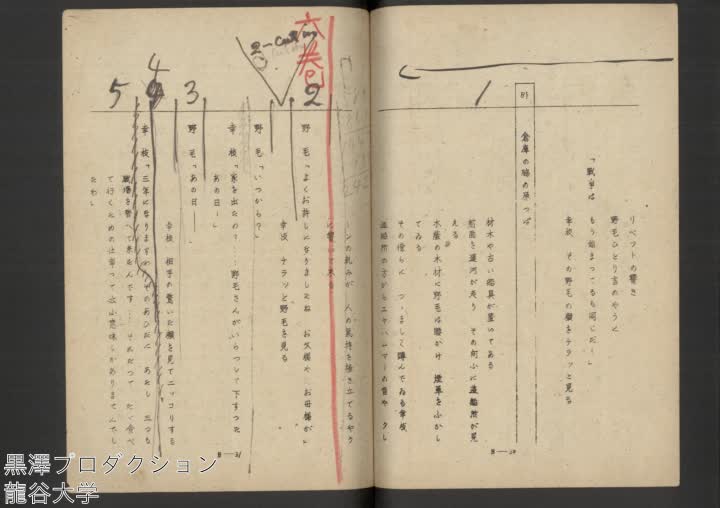 リベットの響き
野毛ひとり言のやうに
「戦争は もう始まってるも同じだ…」
幸枝、その野毛の顔をチラッと見る
倉庫の鴎の原っぱ
材木や古い船具が置いてある
船囲を運河が走り その向ふに造船所が見
える
水蔵の木材に野毛は腰かけ 煙草をふかし
てゐる
その傍らに つゝましく蹲んでゐる幸枝
造船所の方からエヤハンマーの音や クレ
ーンの軋みが 人の気持を掻き立てるやう
に響いて来る
1
六巻
2
2-cut
野毛「よくお許しになりましたね お父様や お母様が」
幸枝 チラッと野毛を見る
野毛「いつから?」
幸枝「家を出たの?… 野毛さんがいらつして下すつた
あの日…」
3
野毛「あの日——
幸枝 相手の驚いた顔を見てニッコリする
4
幸枝「三年になりますわ そのあひだに あたし 三つも
職場を替へて来たんです… それだって たゞ食べ
て行くための仕事って云ふ意味しかありませんでし
たわ」
5
B—20
B—21
黒澤プロダクション
龍谷大学